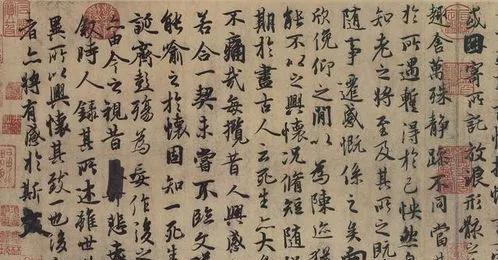 或因寄所託放浪形骸之
趣舍萬殊靜躁不同當其
於所遇蹔得於己怏然
知老之將至及其所之既
隨事遷感慨係之矣向
欣俛仰之閒以為陳迹
能不以之興懷況脩短隨
期於盡古人云死生亦大
不痛哉每攬昔人興感
若合一契未嘗不臨文
能喻之於懷固知一死生
誕齊彭殤為妄作後之
亦由今之視昔悲夫
敘時人錄其所述雖世
異所以興懷其致一也後
者亦將有感於斯文